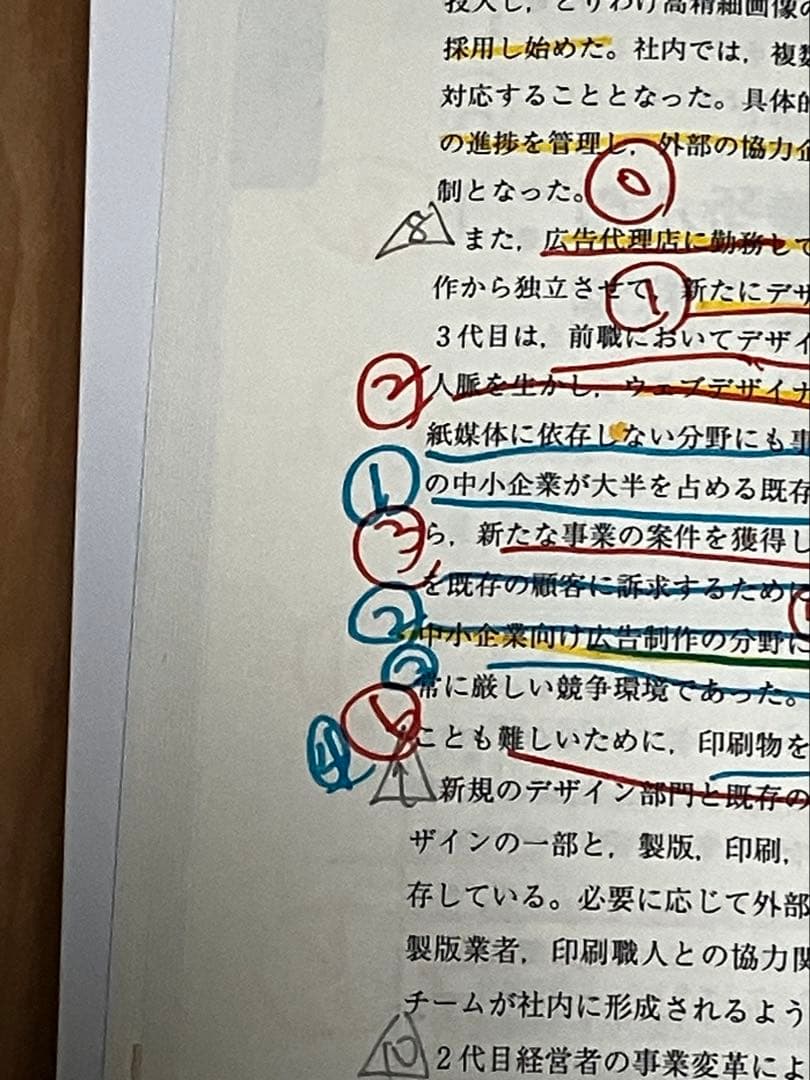 投入し，とりわけ高精細画像の
採用し始めた。社内では，複数
対応することとなった。具体的
の進捗を管理し，外部の協力企
制となった。 0
8 また，広告代理店に勤務して
作から独立させて，1 新たにデザ
3代目は，前職においてデザイ
2 人脈を生かし，ウェブデザイナ
紙媒体に依存しない分野にも事
1 の中小企業が大半を占める既存
3 ら，新たな事業の案件を獲得し
を既存の顧客に訴求するために
2 中小企業向け広告制作の分野に
常に厳しい競争環境であった。
4 ことも難しいために，印刷物を
新規のデザイン部門と既存の
ザインの一部と，製版，印刷，
存している。必要に応じて外部
製版業者，印刷職人との協力関
チームが社内に形成されるよう
10 2代目経営者の事業変革によ